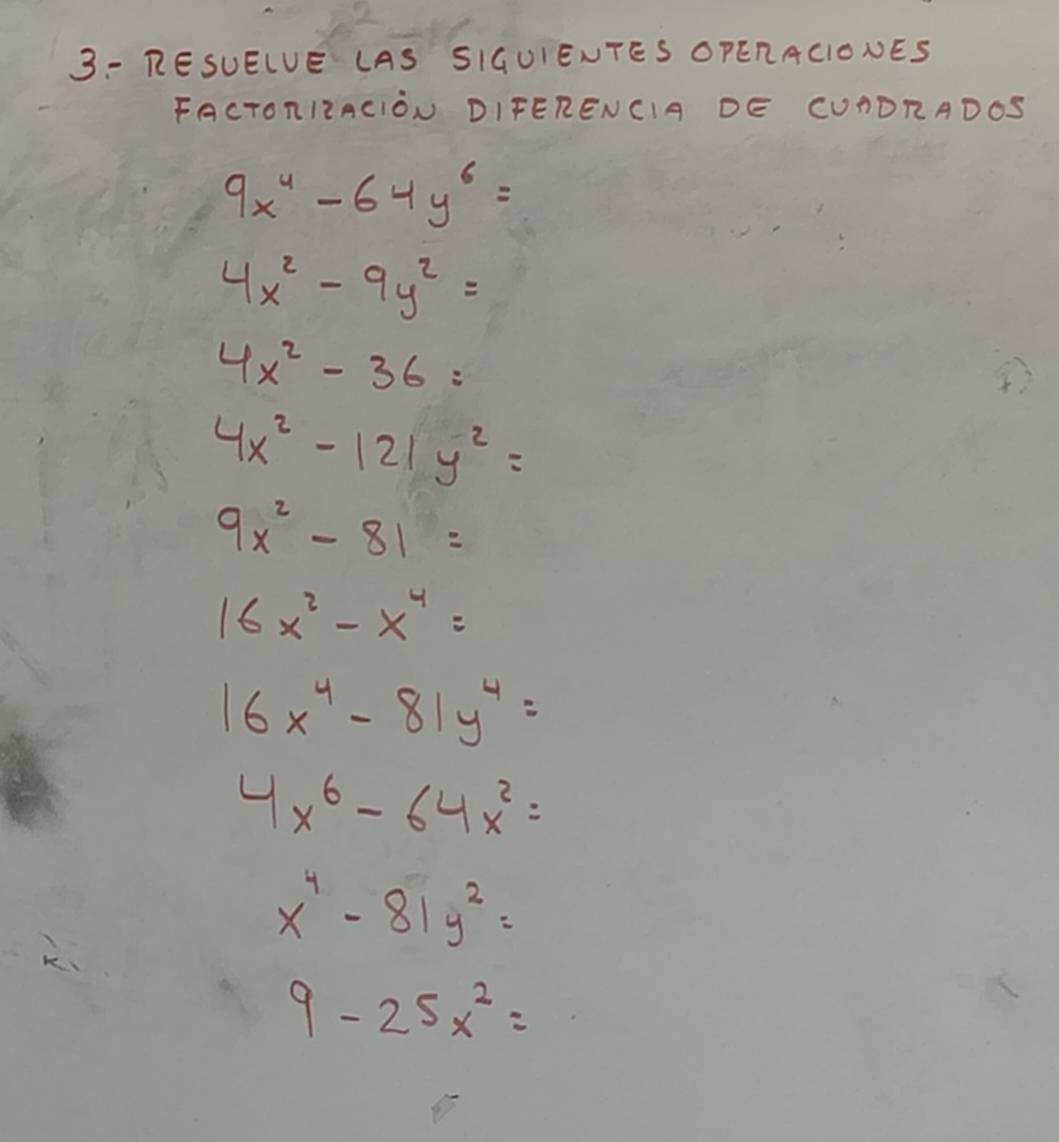 3.- RESUELVE LAS SIGUIENTES OPERACIONES
FACTORIZACIÓN DIFERENCIA DE CUADRADOS
9x⁴ - 64y⁶ =
4x² - 9y² =
4x² - 36 =
4x² - 121y² =
9x² - 81 =
16x² - x⁴ =
16x⁴ - 81y⁴ =
4x⁶ - 64x² =
x⁴ - 81y² =
9 - 25x² =